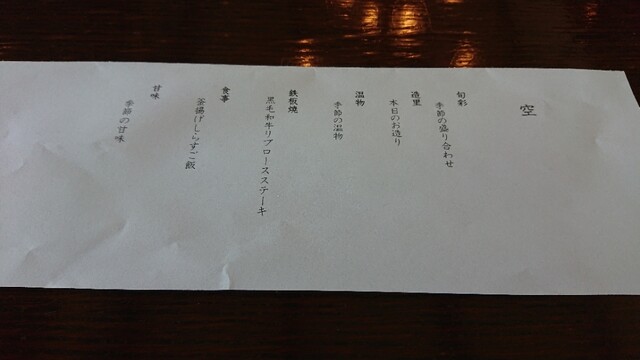 空
旬彩
季節の盛り合わせ
造里
本日のお造り
温物
季節の温物
鉄板焼
黒毛和牛リブロースステーキ
食事
釜揚げしらすご飯
甘味
季節の甘味